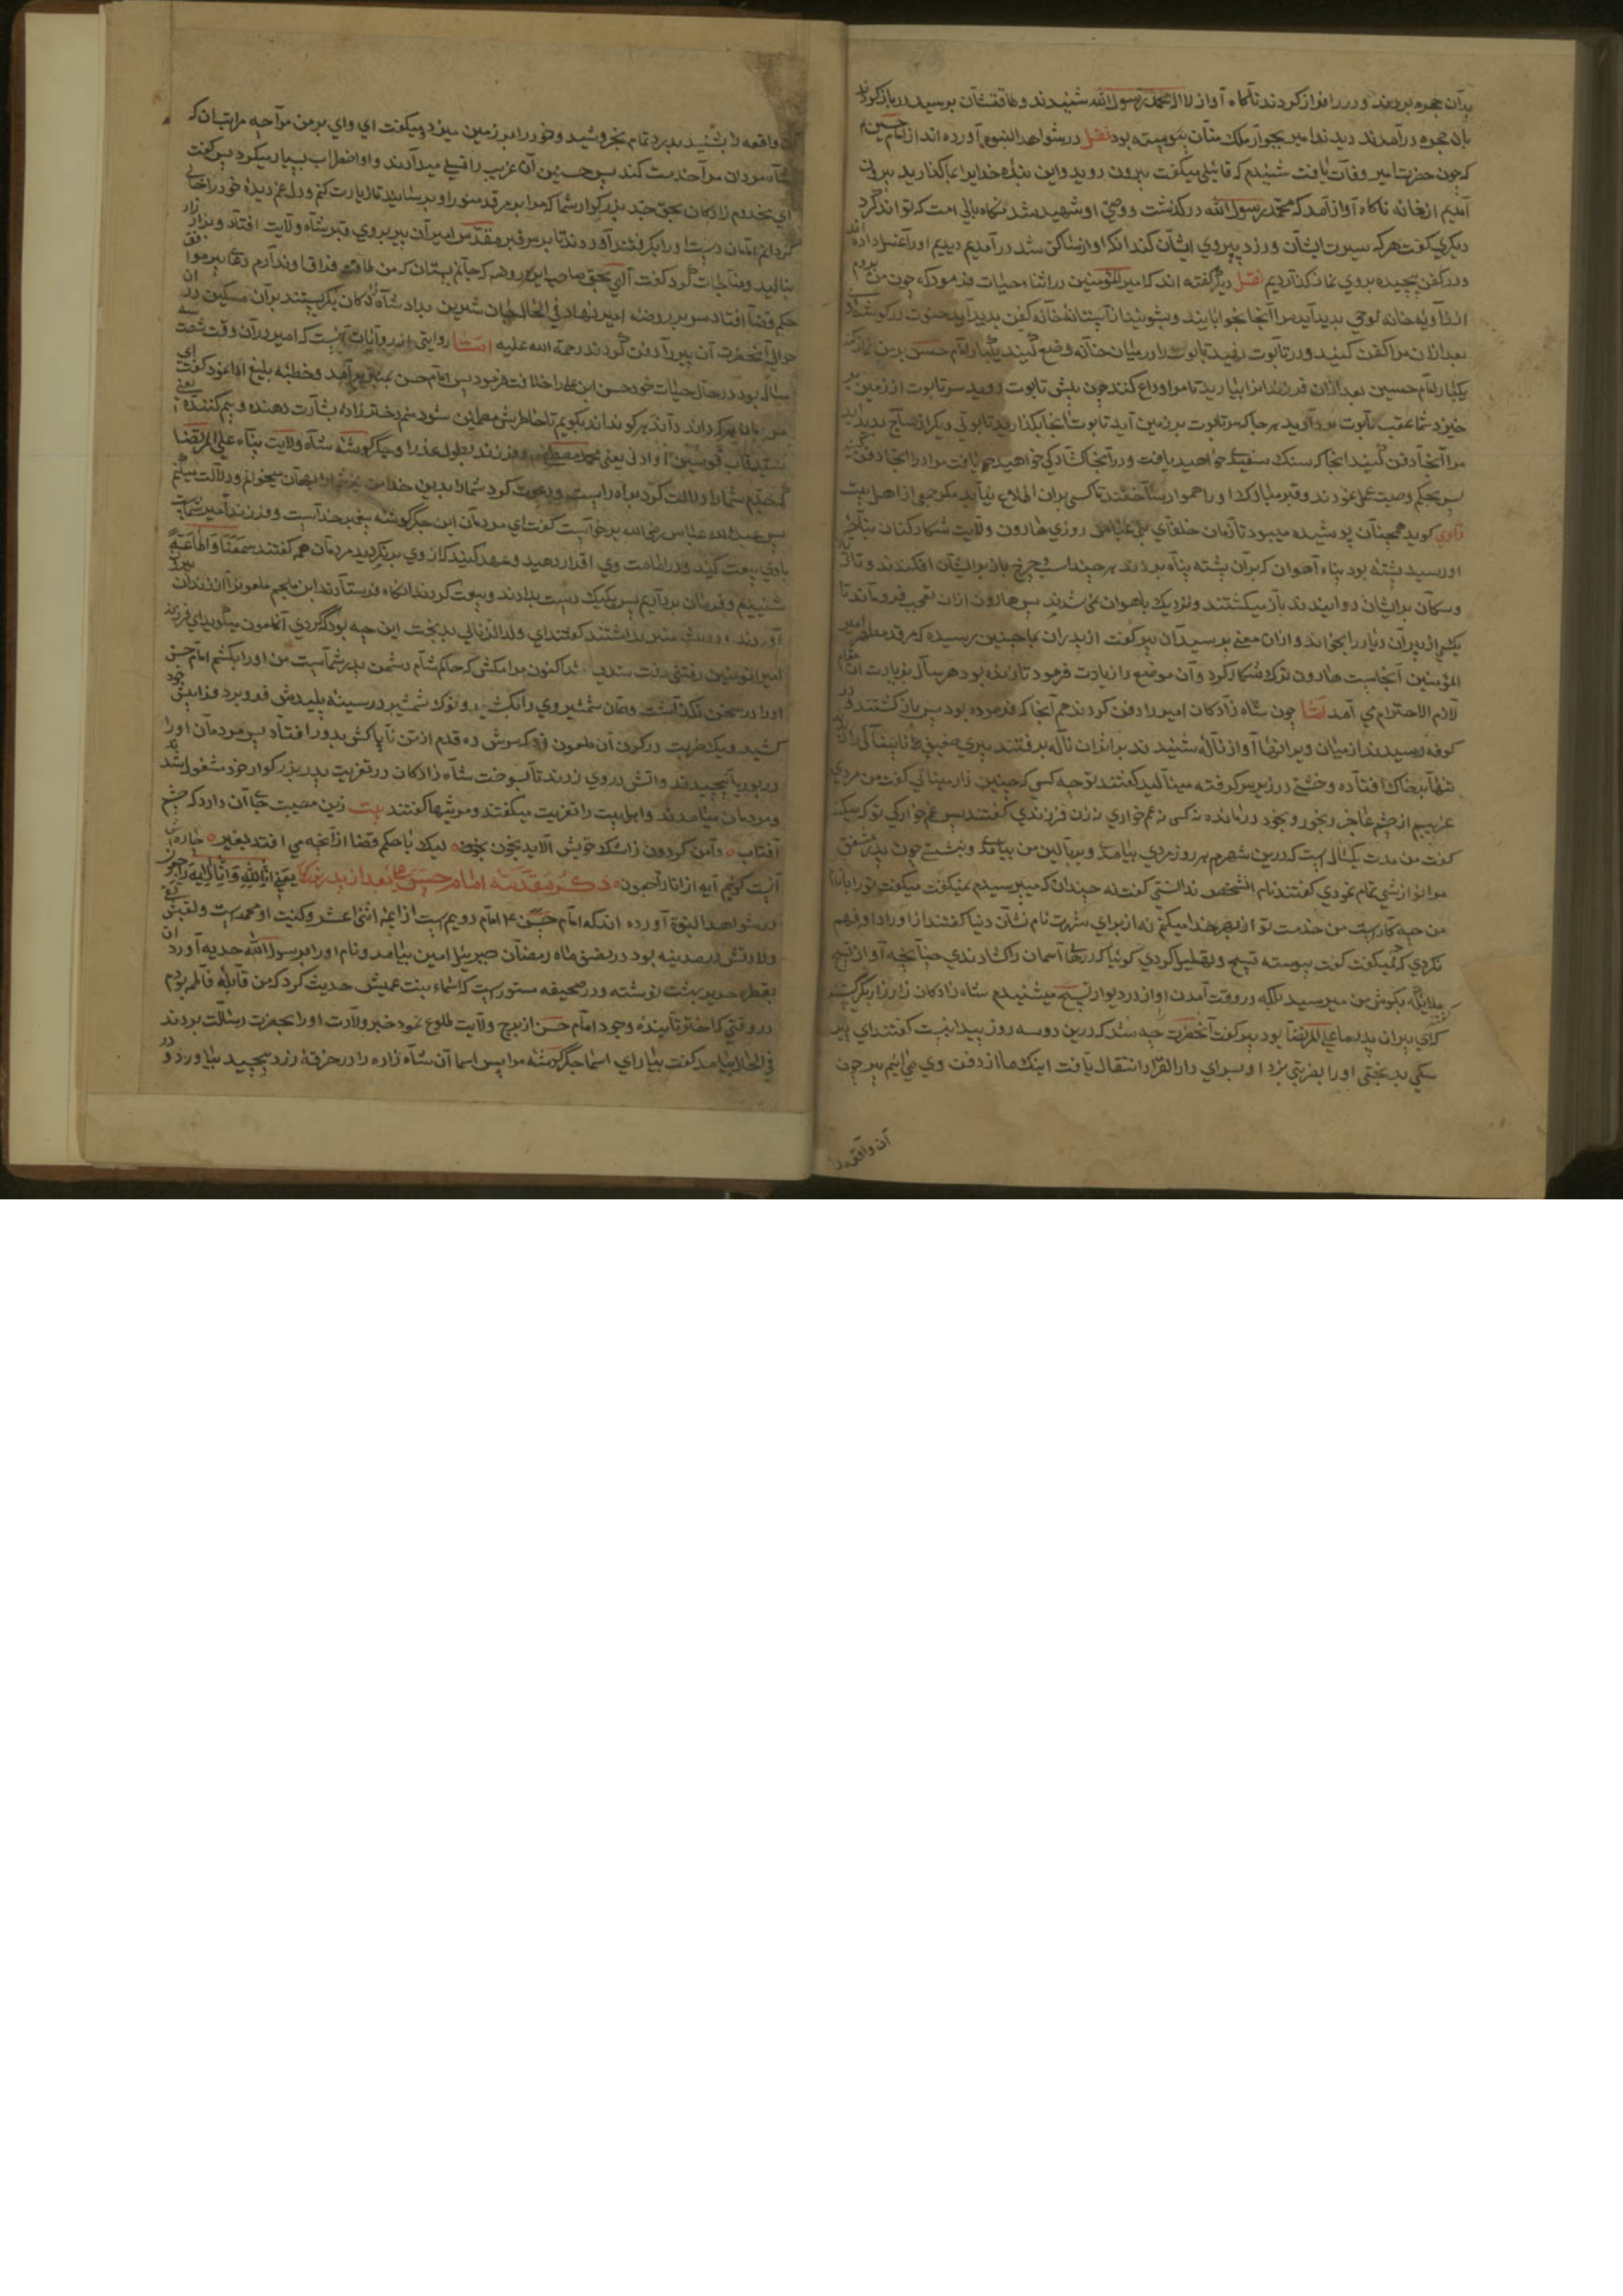 بدان حجره بردند و در را فراز کردند ناگاه آواز لا اله محمد رسول الله شنیدند و طاقتشان برسید در باز کردند
بان حجره در آمدند دیدند امیر بجوار ملک منان پیوسته بود نقل در شواهد النبوه آورده اند از امام حسین
که چون حضرت امیر وفات یافت شنیدم که قائلی میگفت بیرون روید و این بنده خدا را بما گذارید بیرون
آمدیم از خانه ناگاه آواز آمد که محمد رسول الله درگذشت و وصی او شهید شد نگاهبانی امت که تواند کرد
دیگری گفت هر که سیرت ایشان ورزد و پیروی ایشان کند انگه اواز ساکن شد در آمدیم دیدیم او را غسل داده اند
و در کفن پیچیده بروی نماز گذاردیم نقل دیگر گفته اند که امیر المؤمنین در اثناء حیات فرمود که چون من بروم
از زاویه خانه لوحی بدید آید مرا آنجا بخوابانید و بشویید
بعد ازان مرا کفن کنید و در تابوت نهید تابوت را در میان خانه وضع کنید یکبار امام حسن بر من نماز کند
یکبار امام حسین بعد ازان فرزندانرا بیارید تا مرا وداع کنند چون پیش تابوت روید سر تابوت از زمین بر
خیزد شما عقب تابوت بردارید هر جا که سر تابوت بر زمین آید تابوت انجا بگذارید تابوتی دیگر از ساج بدید اید
مرا آنجا دفن کنید انجا که سنک سفید خواهید یافت و در آنجا کشادگی خواهید یافت مرا در انجا دفن کنید
پس بحکم وصیت عمل نمودند و قبر مبارک او را هموار ساختند تا کسی بران اطلاع نیابد مگر جمعی از اهل بیت
راوی گوید همچنان پوشیده میبود تا زمان خلفای بنی عباس روزی هارون ولایت شکار کنان بناحیه
او رسید پشته بود پناه آهوان که بران پشته پناه بردند هر چند باز بر ایشان افکندند و تاز
و سکان بر ایشان دوانیدند باز میکشتند و نزدیک باهوان نمی شدند پس هارون ازان تعجب فرو ماند تا
یکی از پیران دیار را بخواند و ازان معنی پرسید آن پیر گفت از پدران ما چنین رسیده که مرقد مطهر امیر
المؤمنین آنجاست هارون ترک شکار کرد و آن موضع را زیارت فرمود تا زنده بود هر سال بزیارت آن مقام
لازم الاحترام می آمد اما چون شاه زادکان امیر را دفن کردند هم آنجا که فرموده بود پس باز کشتند و در
کوفه رسیدند از میان ویرانها آواز ناله شنیدند بر اثر آن ناله برفتند پیری ضعیف نابینا
تنها بر خاک افتاده و خشتی در زیر سر گرفته مینالید گفتند تو چه کسی که چنین زار مینالی گفت من مردی
غریبم از چشم عاجز و رنجور و بیخود درمانده نه کسی نه غم خواری نه زن فرزندی گفتند پس غم خوارکی تو که میکند
گفت من مدت یکسالی است که درین شهرم هر روز مردی بیامدی و بر بالین من بنشستی چون پدر مشفق
مرا نوازشی تمام نمودی گفتند نام انشخص ندانستی گفت نه چندان که میپرسیدم نمیگفت میگفت ترا با نام
من چه کار است من خدمت تو از بهر خدا میکنم نه از برای شهرت نام نشان دنیا گفتند از اوراد او فهم
نکردی که چه میگفت گفت پیوسته تسبیح و تهلیل کردی گوئیا که درهای آسمان را کشادندی چنانچه آواز تسبیح
ملائکه بکوش من میرسید بلکه در وقت آمدن اواز در دیوار تسبیح میشنیدم شاه زادکان زار زار بگریستند گفتند
کای پیر آن پدر ما علی المرتضا بود پیر گفت آنحضرت چه شد که درین دو سه روز پیدا نیست گفتند ای پیر
سگی بدبختی او را بضربتی بزد او بسرای دار القرار انتقال یافت اینک ما از دفن وی می آئیم پیر چون
آن واقعه را
آن واقعه را بشنید بدرد تمام بخروشید و خود را بر زمین میزد و میگفت ای وای بر من مرا چه مرتبه آن که
شاه مردان مرا خدمت کند پس حسین آن غریب را تسلی میدادند و او اضطراب بسیار میکرد پس گفت
ای مخدوم زادکان بحق جد بزرکوار شما که مرا بر مرقد منور او برسانید تا زیارت کنم و دل غم دیده خود را خالی
گردانم امامان دست او را بگرفتند آوردند تا بر سر قبر مقدس امیر آن پیر بروی قبر شاه ولایت افتاد و بزار زار
بنالید و مناجات کرد گفت الهی بحق صاحب این روضه که جانم بستان که من طاقت فراق او ندارم دعا پیر موافق
حکم قضا افتاد سر بر روضه امیر نهاد فی الحال جان شیرین بداد شاه زادکان بگریستند بر آن مسکین در آن
حوالی آنحضرت آن پیر را دفن کردند رحمة الله علیه اما روایتی از روایات آنست که امیر در آن وقت شصت سه
ساله بود در حال حیات خود حسن ابن علی را خلافت فرمود پس امام حسن بمنبر بر آمد و خطبه بلیغ ادا نمود گفت ای
مردمان هر که داند داند هر کو نداند بگویم تا خاطرش مطمئن شود منم دختر زاده بشارت دهنده و بیم کننده یعنی
سید قاب قوسین او ادنی یعنی محمد مصطفی و فرزند بتول عذرا و جگر گوشه شاه ولایت پناه علی المرتضا
که جدم شما را دلالت کرد براه راست و دعوت کرد شما را بدین خدا من نیز شما را بهمان میخوانم و دلالت میکنم
پس عبد الله عباس رضی الله بر خواست گفت ای مردمان این جگر گوشه پیغمبر خداست و فرزند امیر شماست
باوی بیعت کنید و در امامت وی اقرار دهید و عهد کنید که از وی بر نکردید مردمان همه گفتند سمعنا و اطاعة
شنیدیم و فرمان برداریم پس یکیک دست بدادند و بیعت کردند انگاه فرستادند ابن ملجم ملعون را از زندان بیرون
آوردند گفتند ای ولد الزنای بدبخت این چه بود که کردی آن ملعون میگوید ای فرزند
امیر المؤمنین رفتنی رفت شدنی شد اکنون مرا مکش که حاکم شام دشمن پدر شماست من او را بکشم امام حسن
او را در سخن نگذاشت و همان شمشیر وی را بکشید و نوک شمشیر در سینه پلیدش فرو برد خود
کشید و یک ضربت در گردن آن ملعون زد که سرش ده قدم از تن ناپاکش بدور افتاد پس مردمان او را
در بوریا پیچیدند و اتش در وی زدند تا بسوخت شاه زادکان در تعزیت پدر بزرکوار خود مشغول شدند
و مردمان میامدند و اهل بیت را تعزیت میگفتند و مرثیها گفتند بیت زین مصیبت جای آن دارد که چشم
آفتاب دامن کردون زاشک خویش آلاید بخون لیک با حکم قضا از آنچه می افتد بغیر چاره اش
آنست گویم آیه از انا راجعون ذکر مقدمه امام حسن بعد از پدر یعنی انا لله و انا الیه راجعون
در شواهد النبوة آورده اند که امام حسن امام دویم است از ایمه اثنی عشر و کنیت او محمد است و لقبش تقی
ولادتش در مدینه بود در نصف ماه رمضان جبرئیل امین بیامد و نام او را بر رسول الله هدیه آورد
بقطعه حریر بهشت نوشته و در صحیفه مستور است که اسماء بنت عمیس حدیث کرد که من قابله فاطمه بودم
در وقتی که اختر تابنده وجود امام حسن از برج ولایت طلوع نمود خبر ولادت او را بحضرت رسالت بردند
فی الحال بیامد گفت بیار ای اسما جگر گوشه مرا پس اسما آن شاه زاده را در خرقه زرد پیچید بیاورد و در